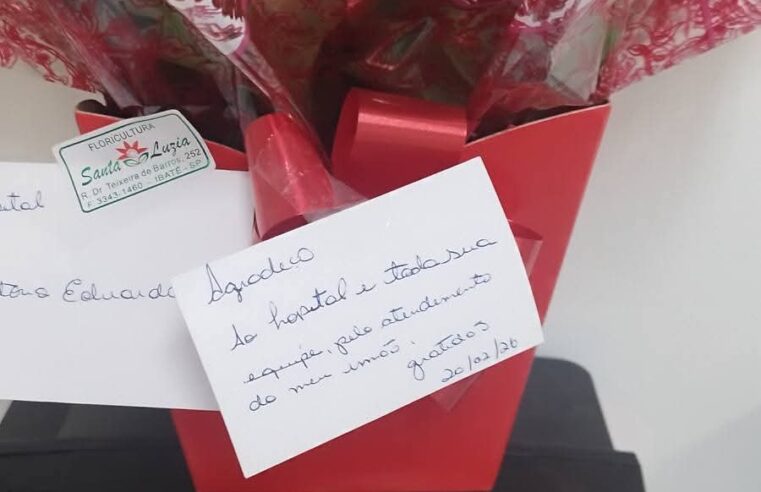 FLORICULTURA
Santa Luzia
R. Dr Teixeira de Barros, 252
F 3343-1460 - IBATÉ - SP
Eduardo
Agradeço
Ao hospital e toda sua
equipe, pelo atendimento
do meu irmão.
gratidos
20/02/26